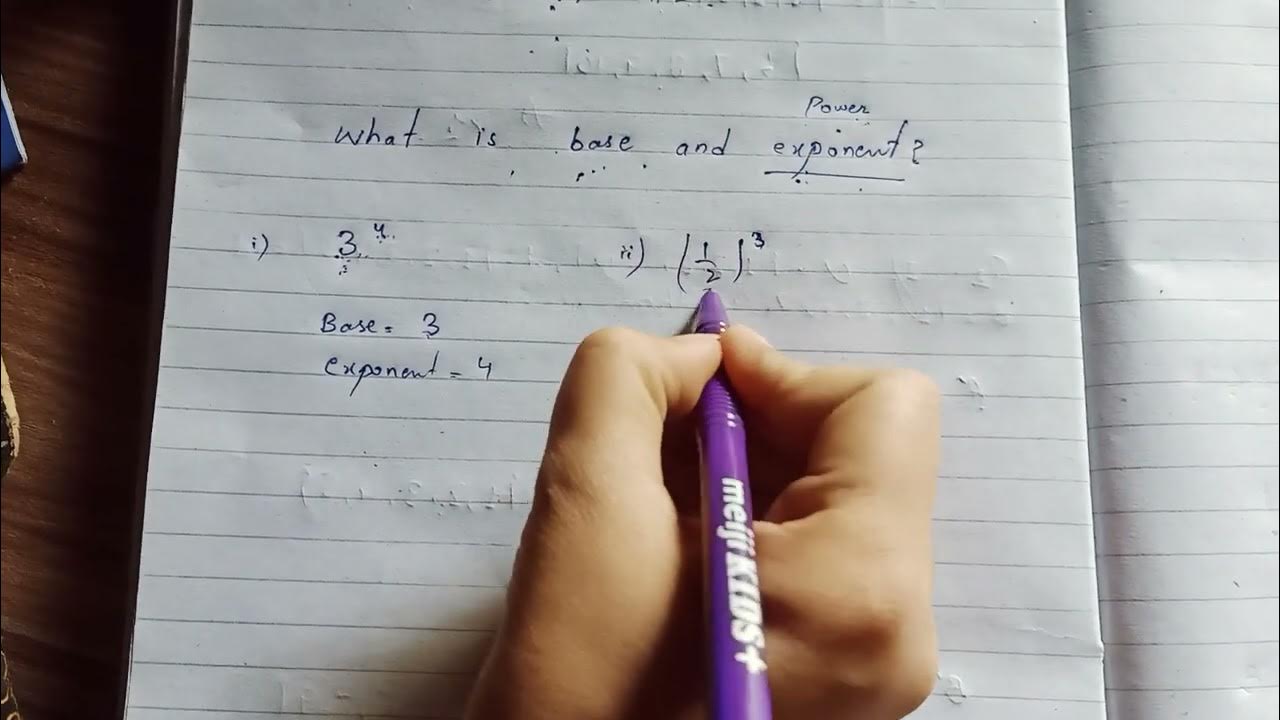 Power
What is base and exponent?
i) 3⁴
ii) (1/2)³
Base = 3
exponent = 4
meiji KIDS+